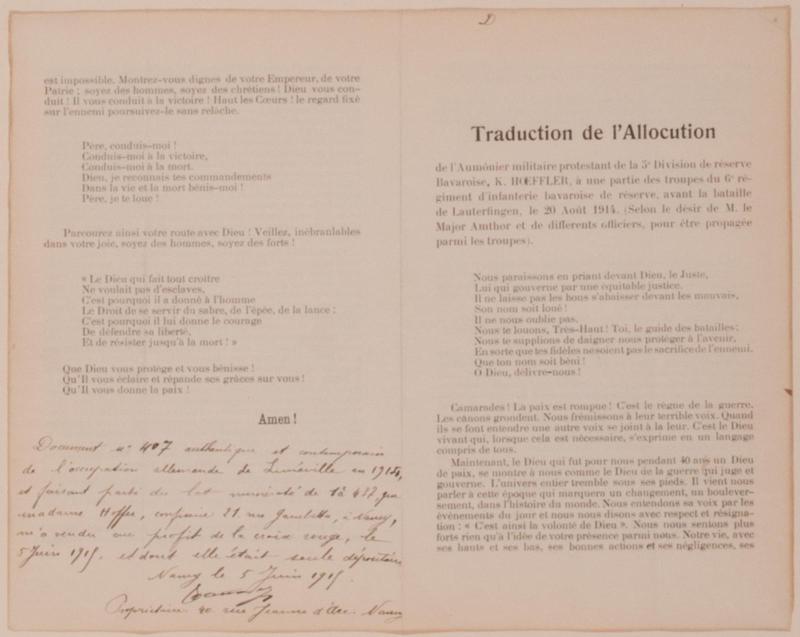 est impossible. Montrez-vous dignes de votre Empereur, de votre
Patrie ; soyez des hommes, soyez des chrétiens ! Dieu vous con-
duit ! Il vous conduit à la victoire ! Haut les Cœurs ! le regard fixé
sur l'ennemi poursuivez-le sans relâche.
Père, conduis-moi !
Conduis-moi à la victoire,
Conduis-moi à la mort.
Dieu, je reconnais tes commandements
Dans la vie et la mort bénis-moi !
Père, je te loue !
Parcourez ainsi votre route avec Dieu ! Veillez, inébranlables
dans votre joie, soyez des hommes, soyez des forts !
« Le Dieu qui fait tout croître
Ne voulait pas d'esclaves,
C'est pourquoi il a donné à l'homme
Le Droit de se servir du sabre, de l'épée, de la lance ;
C'est pourquoi il lui donne le courage
De défendre sa liberté,
Et de résister jusqu'à la mort ! »
Que Dieu vous protège et vous bénisse !
Qu'Il vous éclaire et répande ses grâces sur vous !
Qu'Il vous donne la paix !
Amen !
Document n° 407 authentique et contemporain
de l'occupation allemande de Lunéville en 1914,
et faisant parti du lot numéroté de 1 à 422 que
madame Hoffer, 21 rue Gambetta, à Nancy,
m'a vendu au profit de la croix rouge, le
5 Juin 1915. et dont elle était seule dépositaire
Nancy le 5 Juin 1915.
Propriétaire 20 rue Jeanne d'Arc. Nancy
D
Traduction de l'Allocution
de l'Aumônier militaire protestant de la 5e Division de réserve
Bavaroise, K. HŒFFLER, à une partie des troupes du 6e ré-
giment d'infanterie bavaroise de réserve, avant la bataille
de Lauterfingen, le 20 Août 1914. (Selon le désir de M. le
Major Amthor et de différents officiers, pour être propagée
parmi les troupes).
Nous paraissons en priant devant Dieu, le Juste,
Lui qui gouverne par une équitable justice.
Il ne laisse pas les bons s'abaisser devant les mauvais,
Son nom soit loué !
Il ne nous oublie pas.
Nous te louons, Très-Haut ! Toi, le guide des batailles ;
Nous te supplions de daigner nous protéger à l'avenir,
En sorte que tes fidèles ne soient pas le sacrifice de l'ennemi.
Que ton nom soit béni !
O Dieu, délivre-nous !
Camarades ! La paix est rompue ! C'est le règne de la guerre.
Les canons grondent. Nous frémissons à leur terrible voix. Quand
ils se font entendre une autre voix se joint à la leur. C'est le Dieu
vivant qui, lorsque cela est nécessaire, s'exprime en un langage
compris de tous.
Maintenant, le Dieu qui fut pour nous pendant 40 ans un Dieu
de paix, se montre à nous comme le Dieu de la guerre qui juge et
gouverne. L'univers entier tremble sous ses pieds. Il vient nous
parler à cette époque qui marquera un changement, un boulever-
sement, dans l'histoire du monde. Nous entendons sa voix par les
événements du jour et nous nous disons avec respect et résigna-
tion : « C'est ainsi la volonté de Dieu ». Nous nous sentons plus
forts rien qu'à l'idée de votre présence parmi nous. Notre vie, avec
ses hauts et ses bas, ses bonnes actions et ses négligences, ses